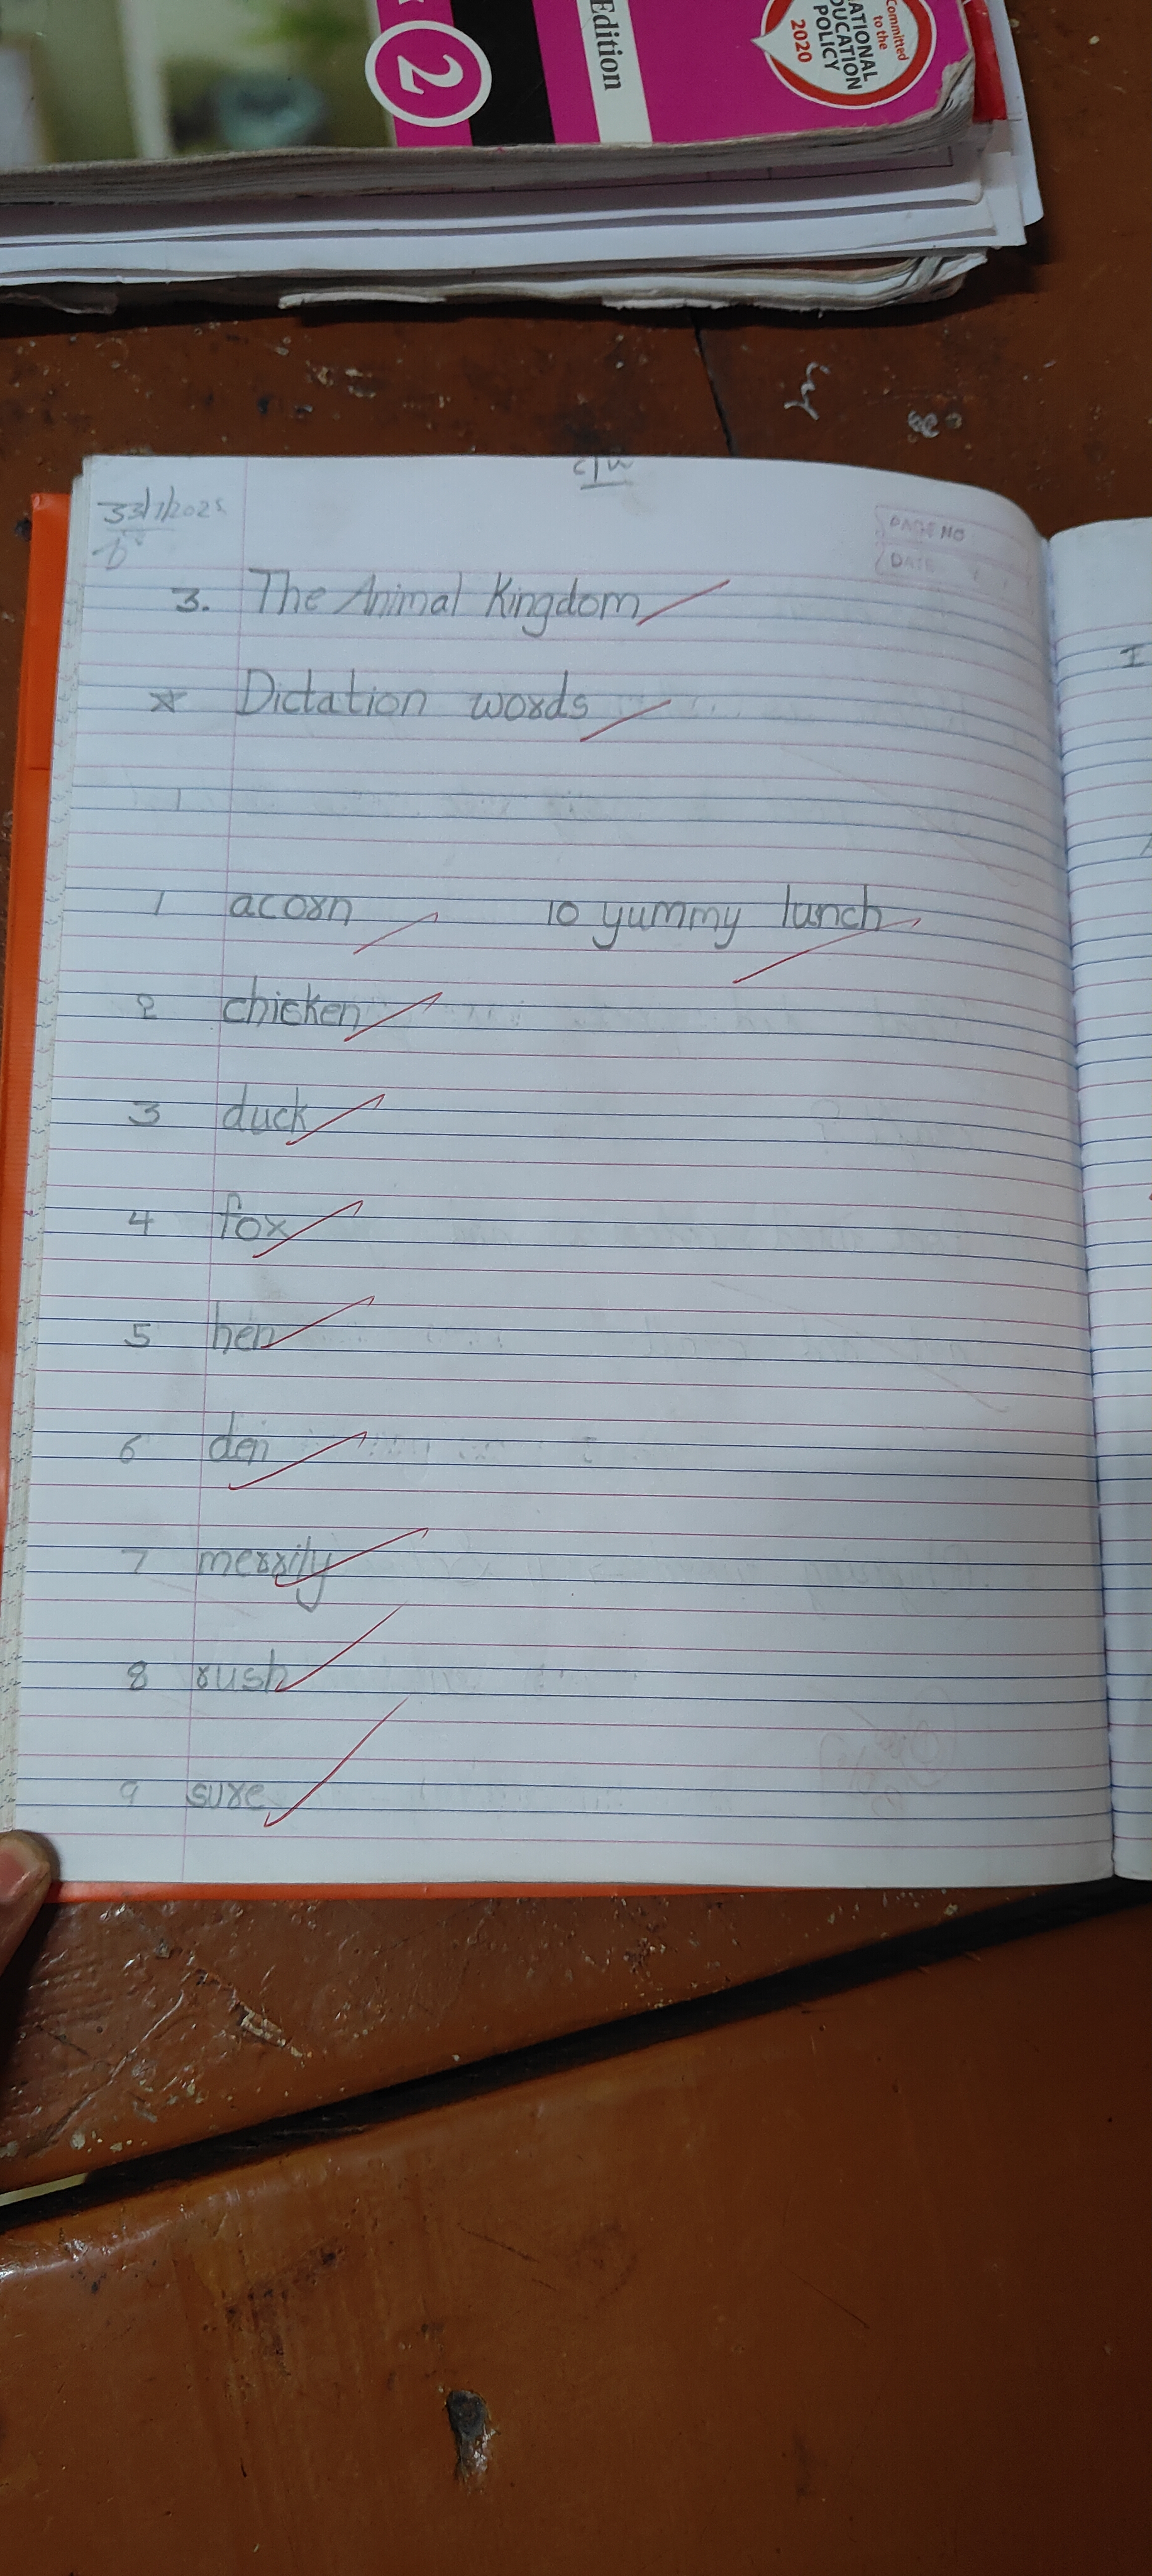 2
Edition
Committed
to the
NATIONAL
EDUCATION
POLICY
2020
C/W
PAGE NO
DATE
3. The Animal Kingdom
* Dictation words
1 acorn
10 yummy lunch
2 chicken
3 duck
4 fox
5 hen
6 den
7 merrily
8 rush
9 sure
I